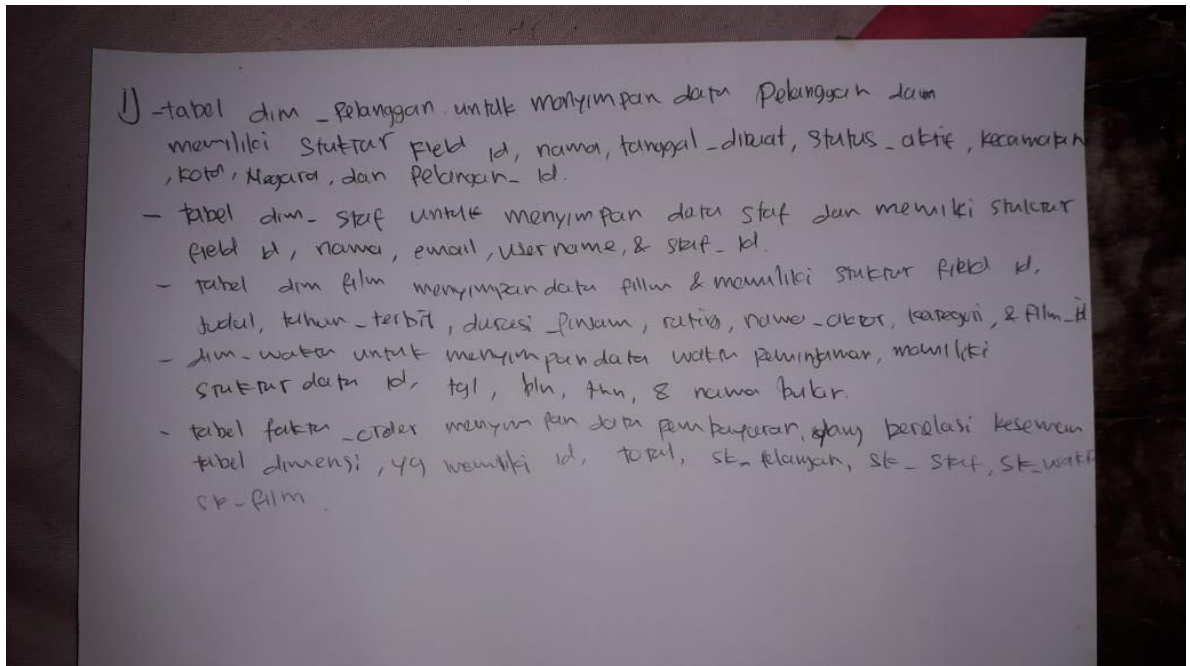 1) -tabel dim _ Pelanggan untuk menyimpan data Pelanggan dan
memiliki Stuktur Field id, nama, tanggal _dibuat, Status _ aktif, kecamatan
, kota, Negara, dan Pelangan_ id.
- tabel dim_ staf untuk menyimpan data staf dan memiki stuktur
field id, nama, email, username, & staf_ id.
- tabel dim film menyimpan data fillm & memiliki stuktur field id,
Judul, tahun _ terbit, durasi _pinjam, rating, nama _aktor, kategori, & film_id
- dim_ waktu untuk menyimpan data waktu peminjaman, memiliki
struktur data id, tgl, bln, thn, & nama bulan.
- tabel fakta _order menyimpan data pembayaran, yang berelasi kesemua
tabel dimensi, yg memiliki id, total, sk_ pelangan, sk _ staf, sk_wakt
sk_film.